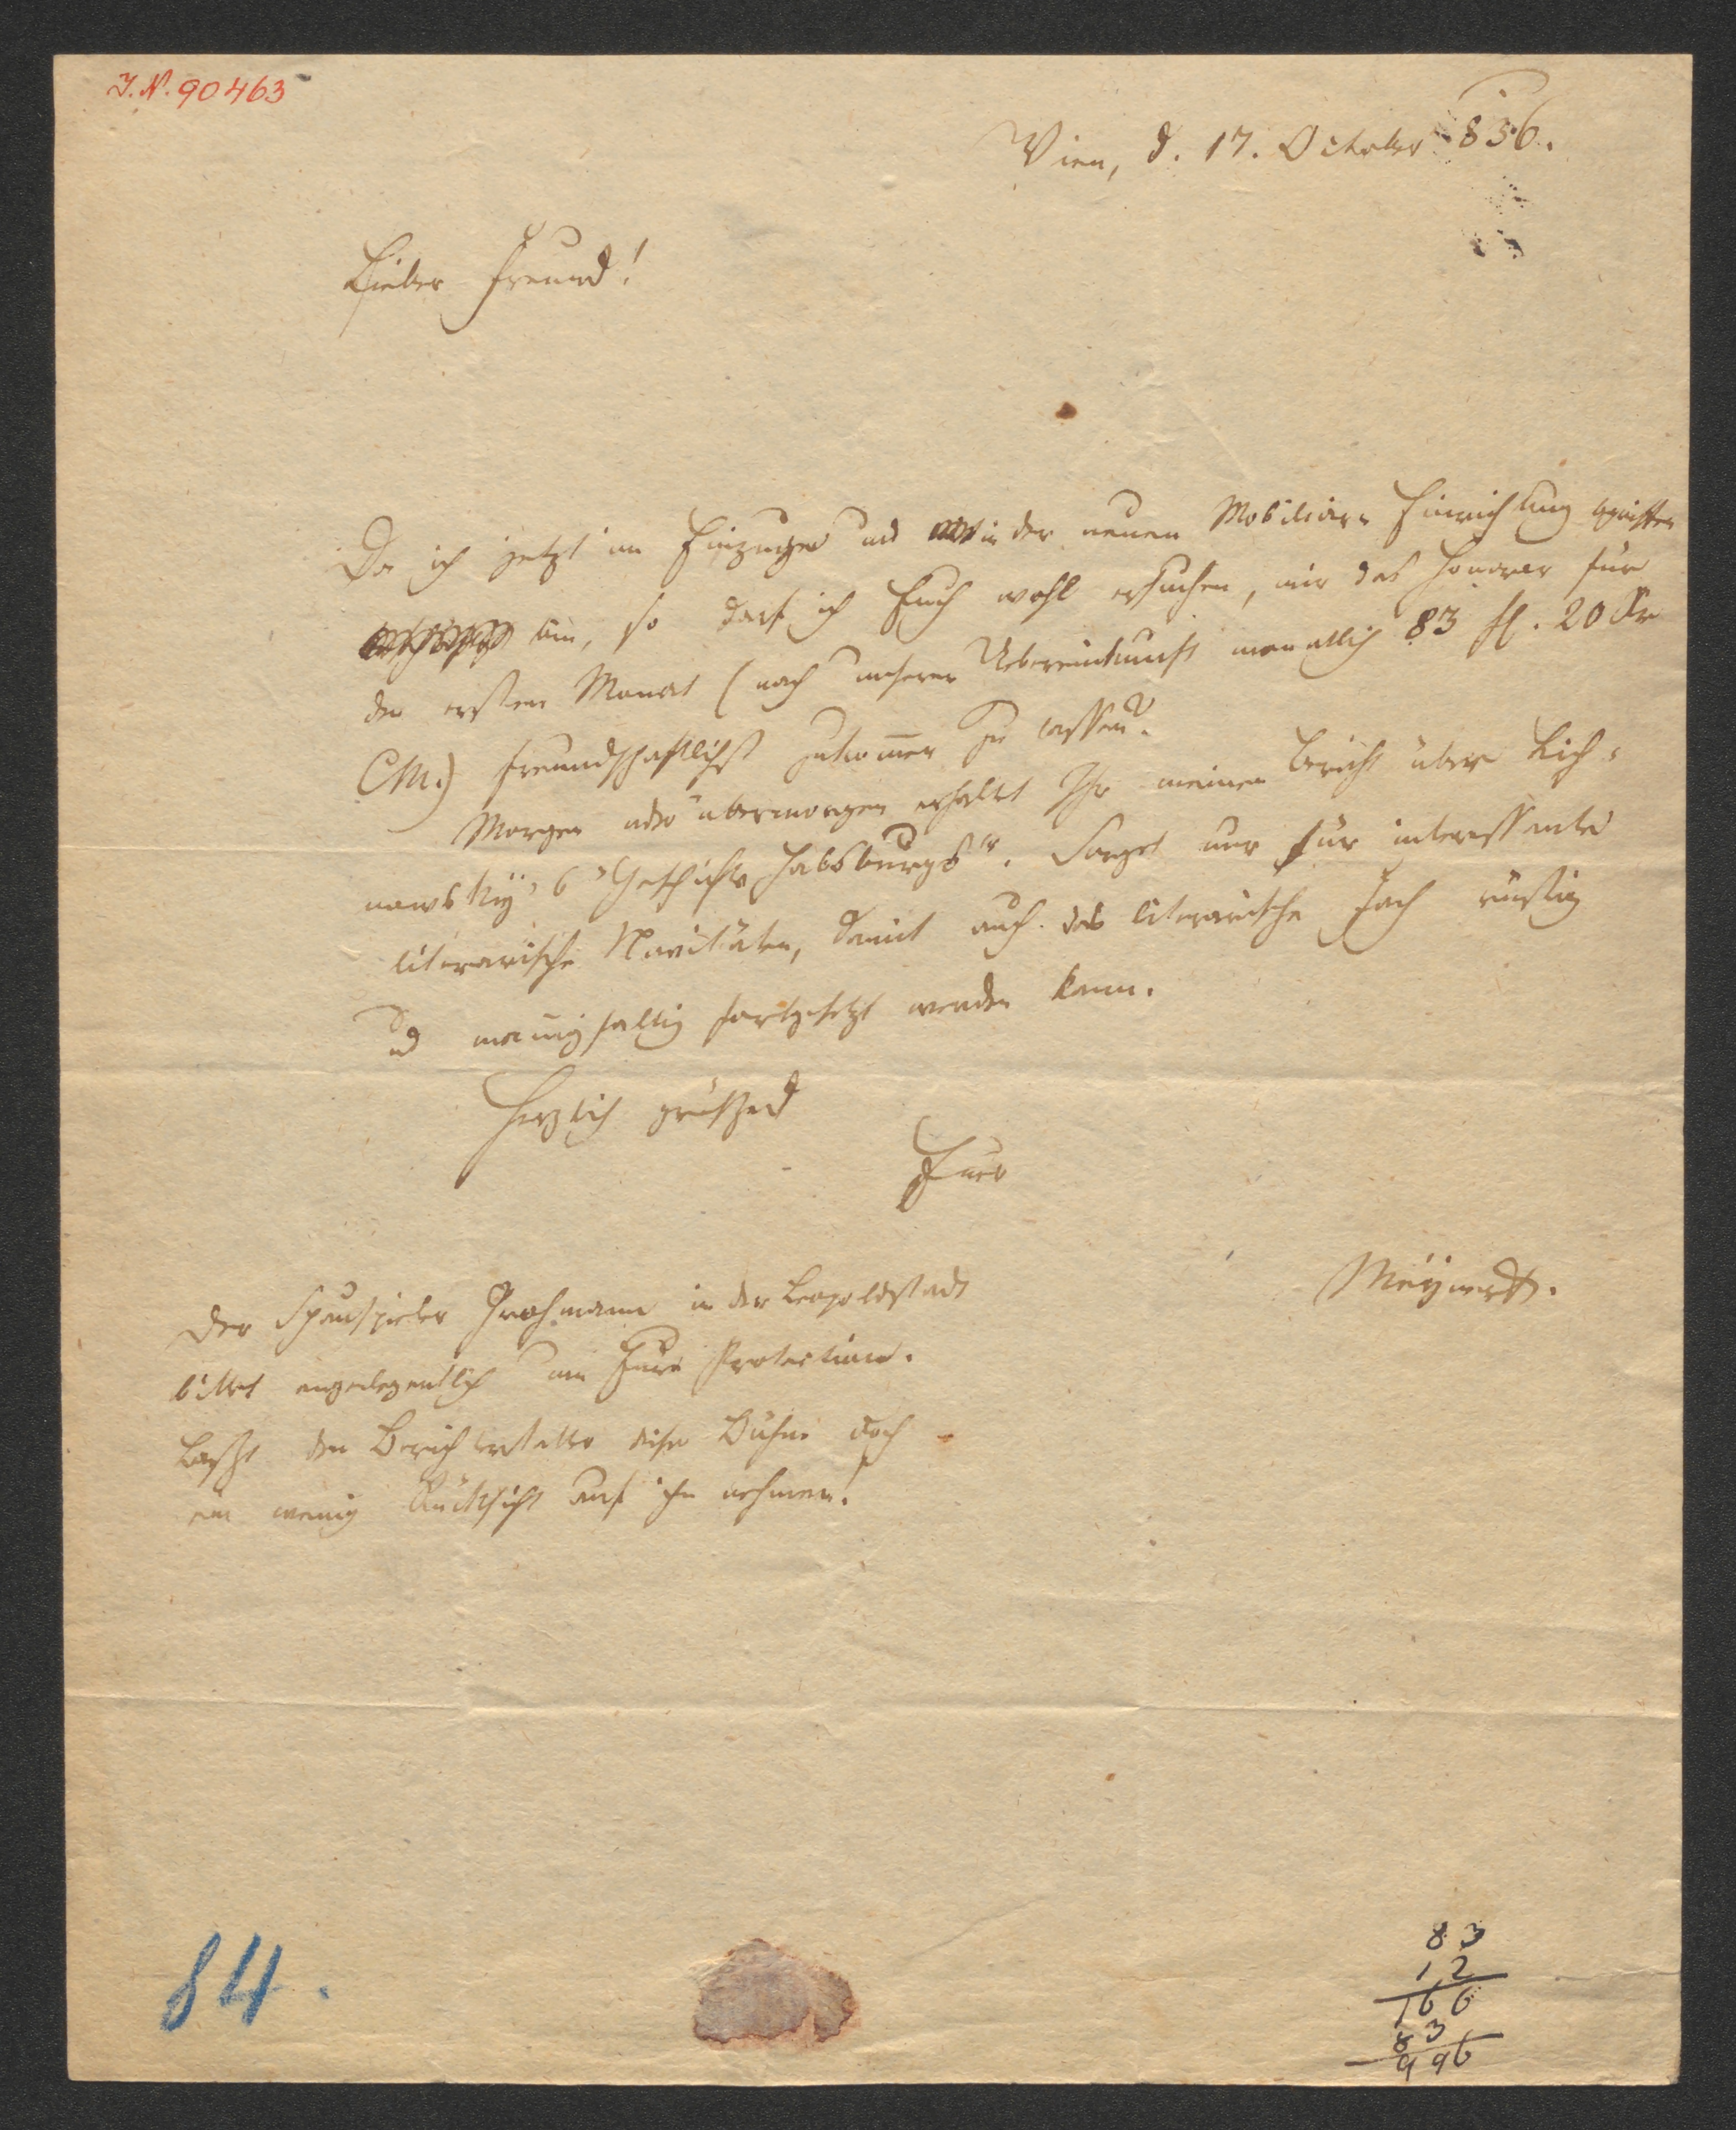 I. N. 90463
Wien, d. 17. October 836.
Lieber Freund!
Da ich jetzt im Einzuge und in der neuen Mobiliar-Einrichtung
bin, so darf ich Euch wohl ersuchen, mir das Honorar für
den ersten Monat (nach unserer Uebereinkunft monatlich 83 fl. 20 Kr
CM.) freundschaftlichst zukom̅en zu lassen.
Morgen oder übermorgen erhaltet Ihr meinen Bericht über Lich-
nowsky's "Geschichte Habsburgs". Sorget nur für interessante
literarische Novitäten, damit auch das literarische Fach rüstig
und mannigfaltig fortgesetzt werden kann.
Herzlich grüßend
Euer
Meynert.
Der Schauspieler Grohmann in der Leopoldstadt
bittet angelegentlich um Eure Protection.
Laßt den Berichterstatter dieser Bühne doch
ein wenig Rücksicht auf ihn nehmen!
84.
83
12
166
83
996